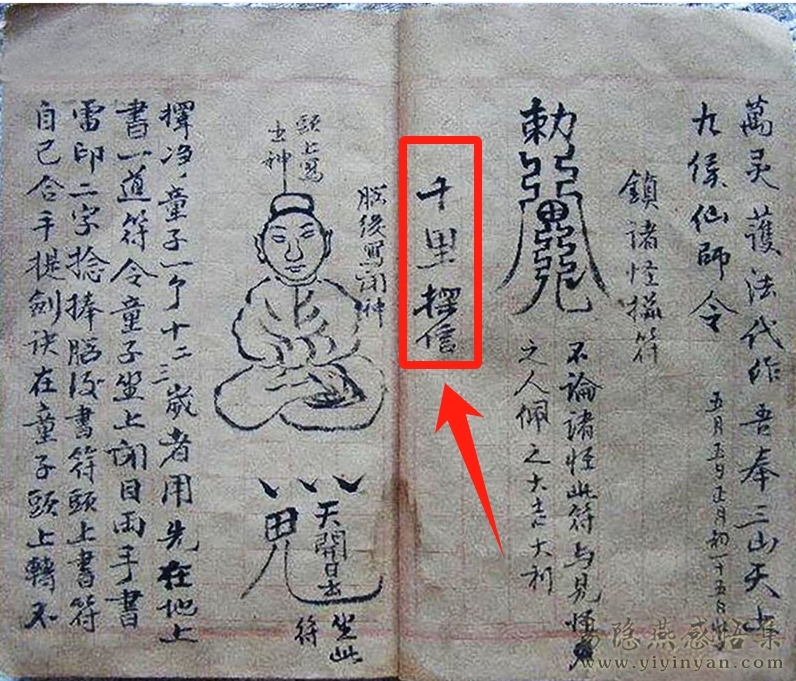 萬灵護法代作吾奉三山天士
九侯仙師令
五月五日正月初一十五日
鎮諸怪攝符
勅
不論諸怪此符与見怪
之人佩之大吉大利
千里探信
脳後寫閉神
頭上寫
出神
天開日去
坐此
符
擇净童子一个十二三歲者用先在地上
書一道符令童子坐上闭目両手書
雷印二字捻捧脳後書符頭上書符
自己合手提劍訣在童子頭上轉不
易隐燕感悟集
www.yiyinyan.com